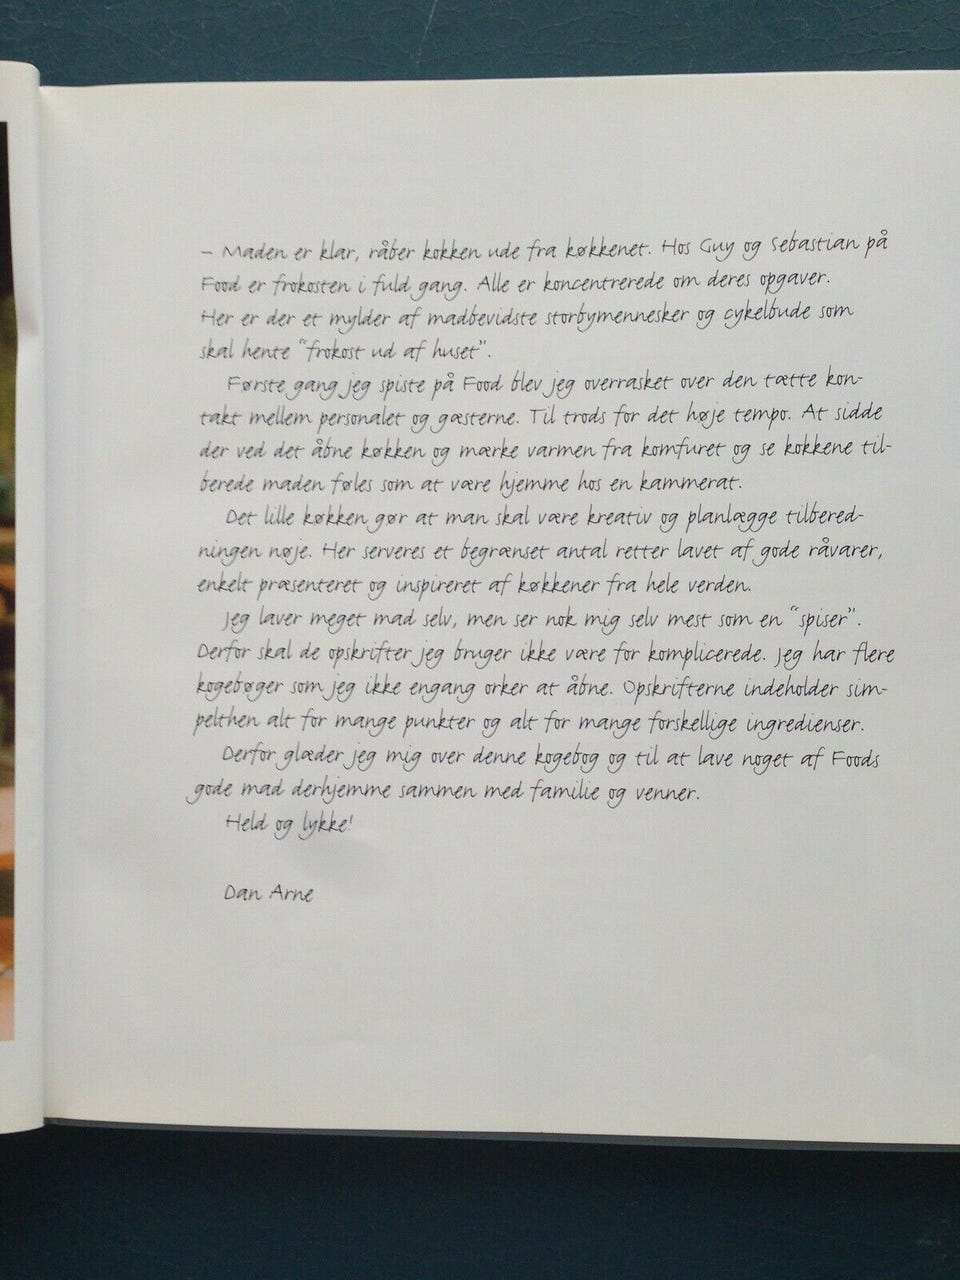 – Maden er klar, råber kokken ude fra køkkenet. Hos Guy og Sebastian på
Food er frokosten i fuld gang. Alle er koncentrerede om deres opgaver.
Her er der et mylder af madbevidste storbymennesker og cykelbude som
skal hente "frokost ud af huset".
Første gang jeg spiste på Food blev jeg overrasket over den tætte kon-
takt mellem personalet og gæsterne. Til trods for det høje tempo. At sidde
der ved det åbne køkken og mærke varmen fra komfuret og se kokkene til-
berede maden føles som at være hjemme hos en kammerat.
Det lille køkken gør at man skal være kreativ og planlægge tilbered-
ningen nøje. Her serveres et begrænset antal retter lavet af gode råvarer,
enkelt præsenteret og inspireret af køkkener fra hele verden.
Jeg laver meget mad selv, men ser nok mig selv mest som en "spiser".
Derfor skal de opskrifter jeg bruger ikke være for komplicerede. Jeg har flere
kogebøger som jeg ikke engang orker at åbne. Opskrifterne indeholder sim-
pelthen alt for mange punkter og alt for mange forskellige ingredienser.
Derfor glæder jeg mig over denne kogebog og til at lave noget af Foods
gode mad derhjemme sammen med familie og venner.
Held og lykke!
Dan Arne